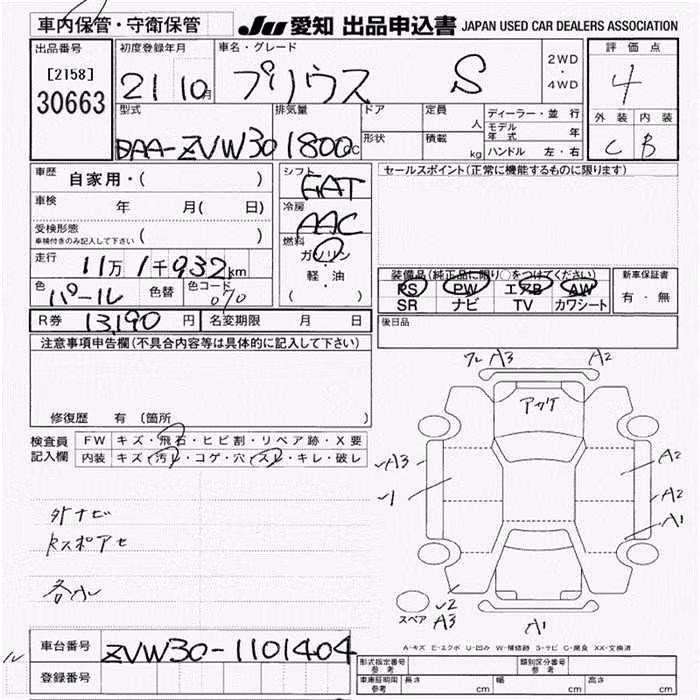 車内保管・守衛保管
JU 愛知 出品申込書 JAPAN USED CAR DEALERS ASSOCIATION
出品番号
[2158]
30663
初度登録年月
21 10月
車名・グレード
プリウス S
2WD
・
4WD
評価点
4
外装 内装
C B
型式
DAA-ZVW30
排気量
1800cc
ドア
形状
定員 人
積載 kg
ディーラー・並行
モデル年式 年
ハンドル 左・右
車歴 自家用・( )
車検 年 月( 日)
受検形態
車検付きのみ記入して下さい ( )
走行 11万1千932km
色 パール 色替 色コード 070
R券 13,190円 名変期限 月 日
シフト
FAT
冷房
AAC
燃料
ガソリン
軽・油
( )
セールスポイント(正常に機能するものに限ります)
装備品(純正品に限り○をつけてください)
PS PW エアB AW
SR ナビ TV カワシート
新車保証書
有・無
後日品
注意事項申告欄(不具合内容等は具体的に記入して下さい)
修復歴 有 〔箇所 〕
検査員
記入欄
FW キズ・飛石・ヒビ割・リペア跡・X要
内装 キズ・汚レ・コゲ・穴・スレ・キレ・破レ
外ナビ
Rスポアセ
各小
ワレ A3 A2
アッケ
A3
A2
A2
A1
スペア
A3
A1
A-キズ E-エクボ U-凹み W-補修跡 S-サビ C-腐食 XX-交換済
車台番号 ZVW30-1101404
登録番号
形式指定番号
参考
類別区分番号
参考
車庫証明用
参考
長さ cm 幅 cm 高さ cm